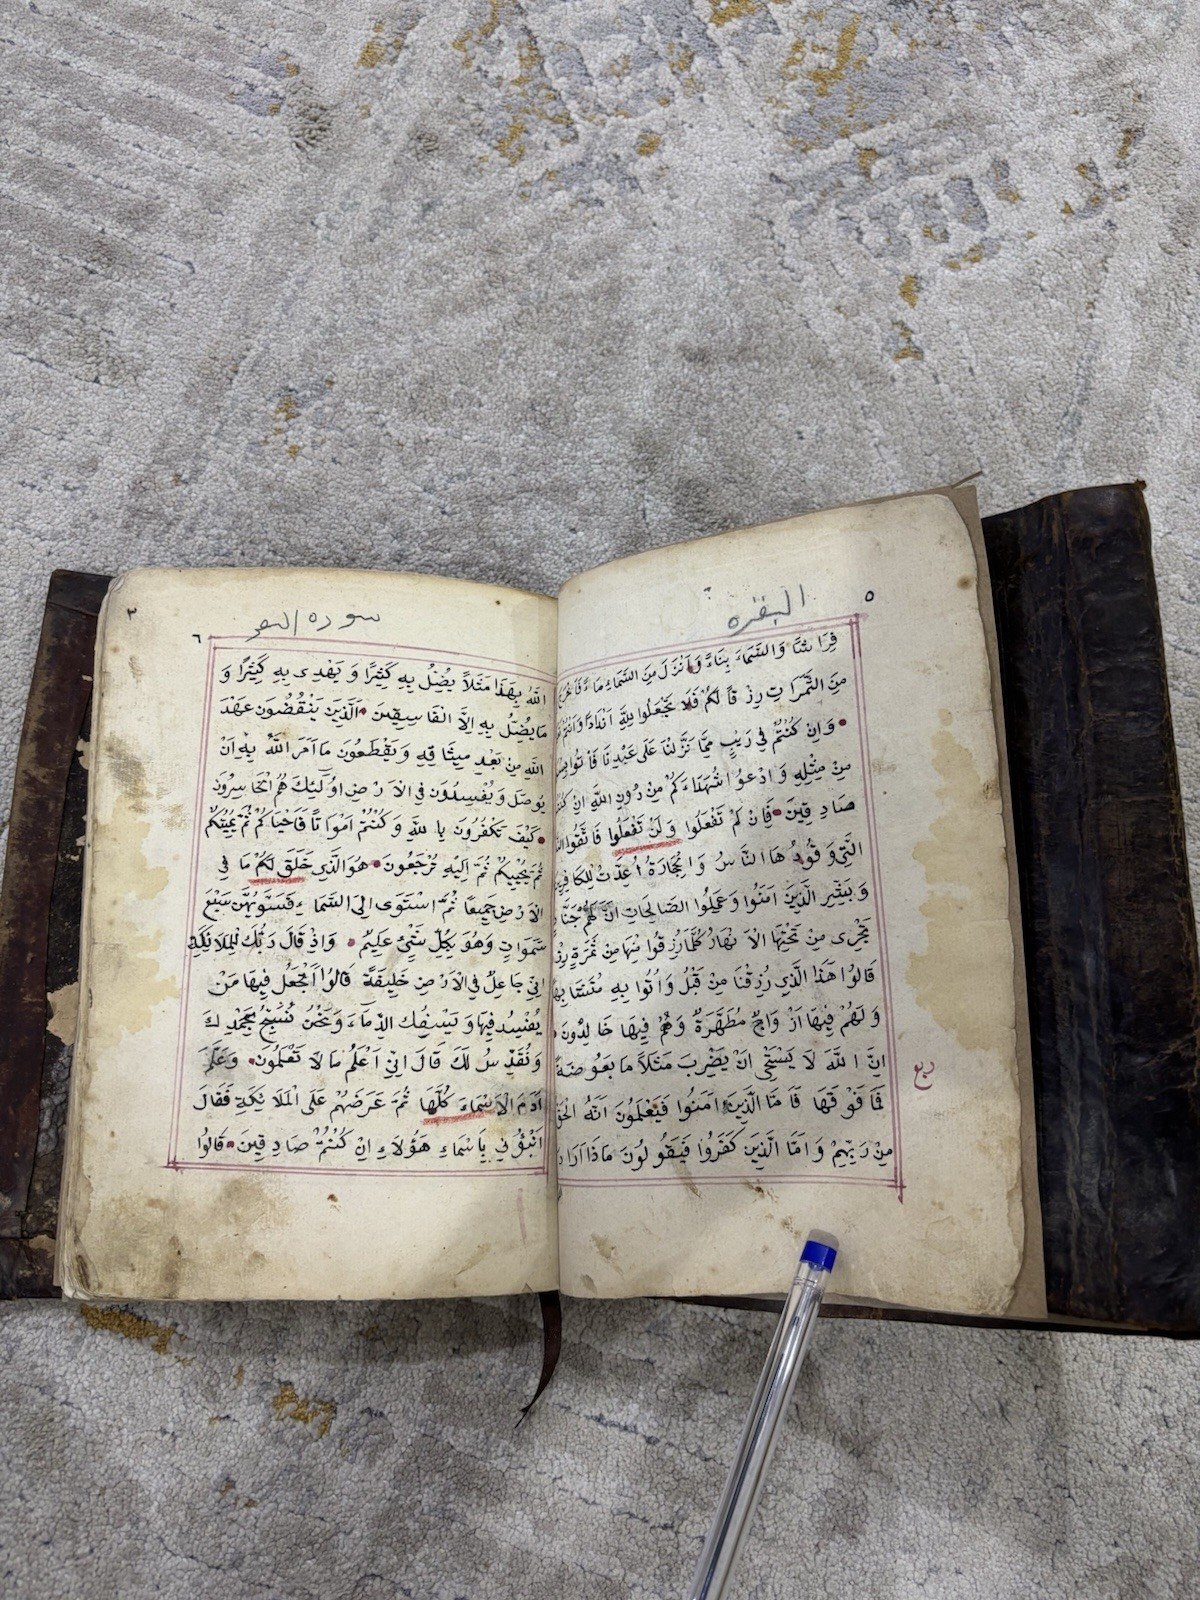 ٥
البقره
فِرَاشًا وَالسَّمَاءَ بِنَاءً وَاَنْزَلَ مِنَ السَّمَاءِ مَاءً فَاَخْرَجَ
مِنَ الثَّمَرَاتِ رِزْقًا لَكُمْ فَلَا تَجْعَلُوا لِلّٰهِ اَنْدَادًا وَاَنْتُمْ
وَاِنْ كُنْتُمْ فِي رَيْبٍ مِمَّا نَزَّلْنَا عَلَى عَبْدِنَا فَأْتُوا
مِنْ مِثْلِهِ وَادْعُوا شُهَدَاءَكُمْ مِنْ دُونِ اللّٰهِ اِنْ
صَادِقِينَ فَاِنْ لَمْ تَفْعَلُوا وَلَنْ تَفْعَلُوا فَاتَّقُوا
الَّتِي وَقُودُهَا النَّاسُ وَالْحِجَارَةُ اُعِدَّتْ لِلْكَافِرِينَ
وَبَشِّرِ الَّذِينَ اٰمَنُوا وَعَمِلُوا الصَّالِحَاتِ اَنَّ لَهُمْ
تَجْرِى مِنْ تَحْتِهَا الْاَنْهَارُ كُلَّمَا رُزِقُوا مِنْهَا مِنْ ثَمَرَةٍ
قَالُوا هٰذَا الَّذِى رُزِقْنَا مِنْ قَبْلُ وَاُتُوا بِهِ مُتَشَابِهًا
وَلَهُمْ فِيهَا اَزْوَاجٌ مُطَهَّرَةٌ وَهُمْ فِيهَا خَالِدُونَ
اِنَّ اللّٰهَ لَا يَسْتَحْيِ اَنْ يَضْرِبَ مَثَلًا مَا بَعُوضَةً
فَمَا فَوْقَهَا فَاَمَّا الَّذِينَ اٰمَنُوا فَيَعْلَمُونَ اَنَّهُ الْحَقُّ
مِنْ رَبِّهِمْ وَاَمَّا الَّذِينَ كَفَرُوا فَيَقُولُونَ مَاذَا اَرَادَ
ربع
٣
سوره
٦
اللّٰهُ بِهٰذَا مَثَلًا يُضِلُّ بِهِ كَثِيرًا وَيَهْدِى بِهِ كَثِيرًا وَ
مَا يُضِلُّ بِهِ اِلَّا الْفَاسِقِينَ اَلَّذِينَ يَنْقُضُونَ عَهْدَ
اللّٰهِ مِنْ بَعْدِ مِيثَاقِهِ وَيَقْطَعُونَ مَا اَمَرَ اللّٰهُ بِهِ اَنْ
يُوصَلَ وَيُفْسِدُونَ فِي الْاَرْضِ اُولٰئِكَ هُمُ الْخَاسِرُونَ
كَيْفَ تَكْفُرُونَ بِاللّٰهِ وَكُنْتُمْ اَمْوَاتًا فَاَحْيَاكُمْ ثُمَّ يُمِيتُكُمْ
ثُمَّ يُحْيِيكُمْ ثُمَّ اِلَيْهِ تُرْجَعُونَ هُوَ الَّذِى خَلَقَ لَكُمْ مَا فِي
الْاَرْضِ جَمِيعًا ثُمَّ اسْتَوٰى اِلَى السَّمَاءِ فَسَوّٰيهُنَّ سَبْعَ
سَمٰوَاتٍ وَهُوَ بِكُلِّ شَيْءٍ عَلِيمٌ وَاِذْ قَالَ رَبُّكَ لِلْمَلَائِكَةِ
اِنِّي جَاعِلٌ فِي الْاَرْضِ خَلِيفَةً قَالُوا اَتَجْعَلُ فِيهَا مَنْ
يُفْسِدُ فِيهَا وَيَسْفِكُ الدِّمَاءَ وَنَحْنُ نُسَبِّحُ بِحَمْدِكَ
وَنُقَدِّسُ لَكَ قَالَ اِنِّي اَعْلَمُ مَا لَا تَعْلَمُونَ وَعَلَّمَ
اٰدَمَ الْاَسْمَاءَ كُلَّهَا ثُمَّ عَرَضَهُمْ عَلَى الْمَلَائِكَةِ فَقَالَ
اَنْبِؤُنِي بِاَسْمَاءِ هٰؤُلَاءِ اِنْ كُنْتُمْ صَادِقِينَ قَالُوا